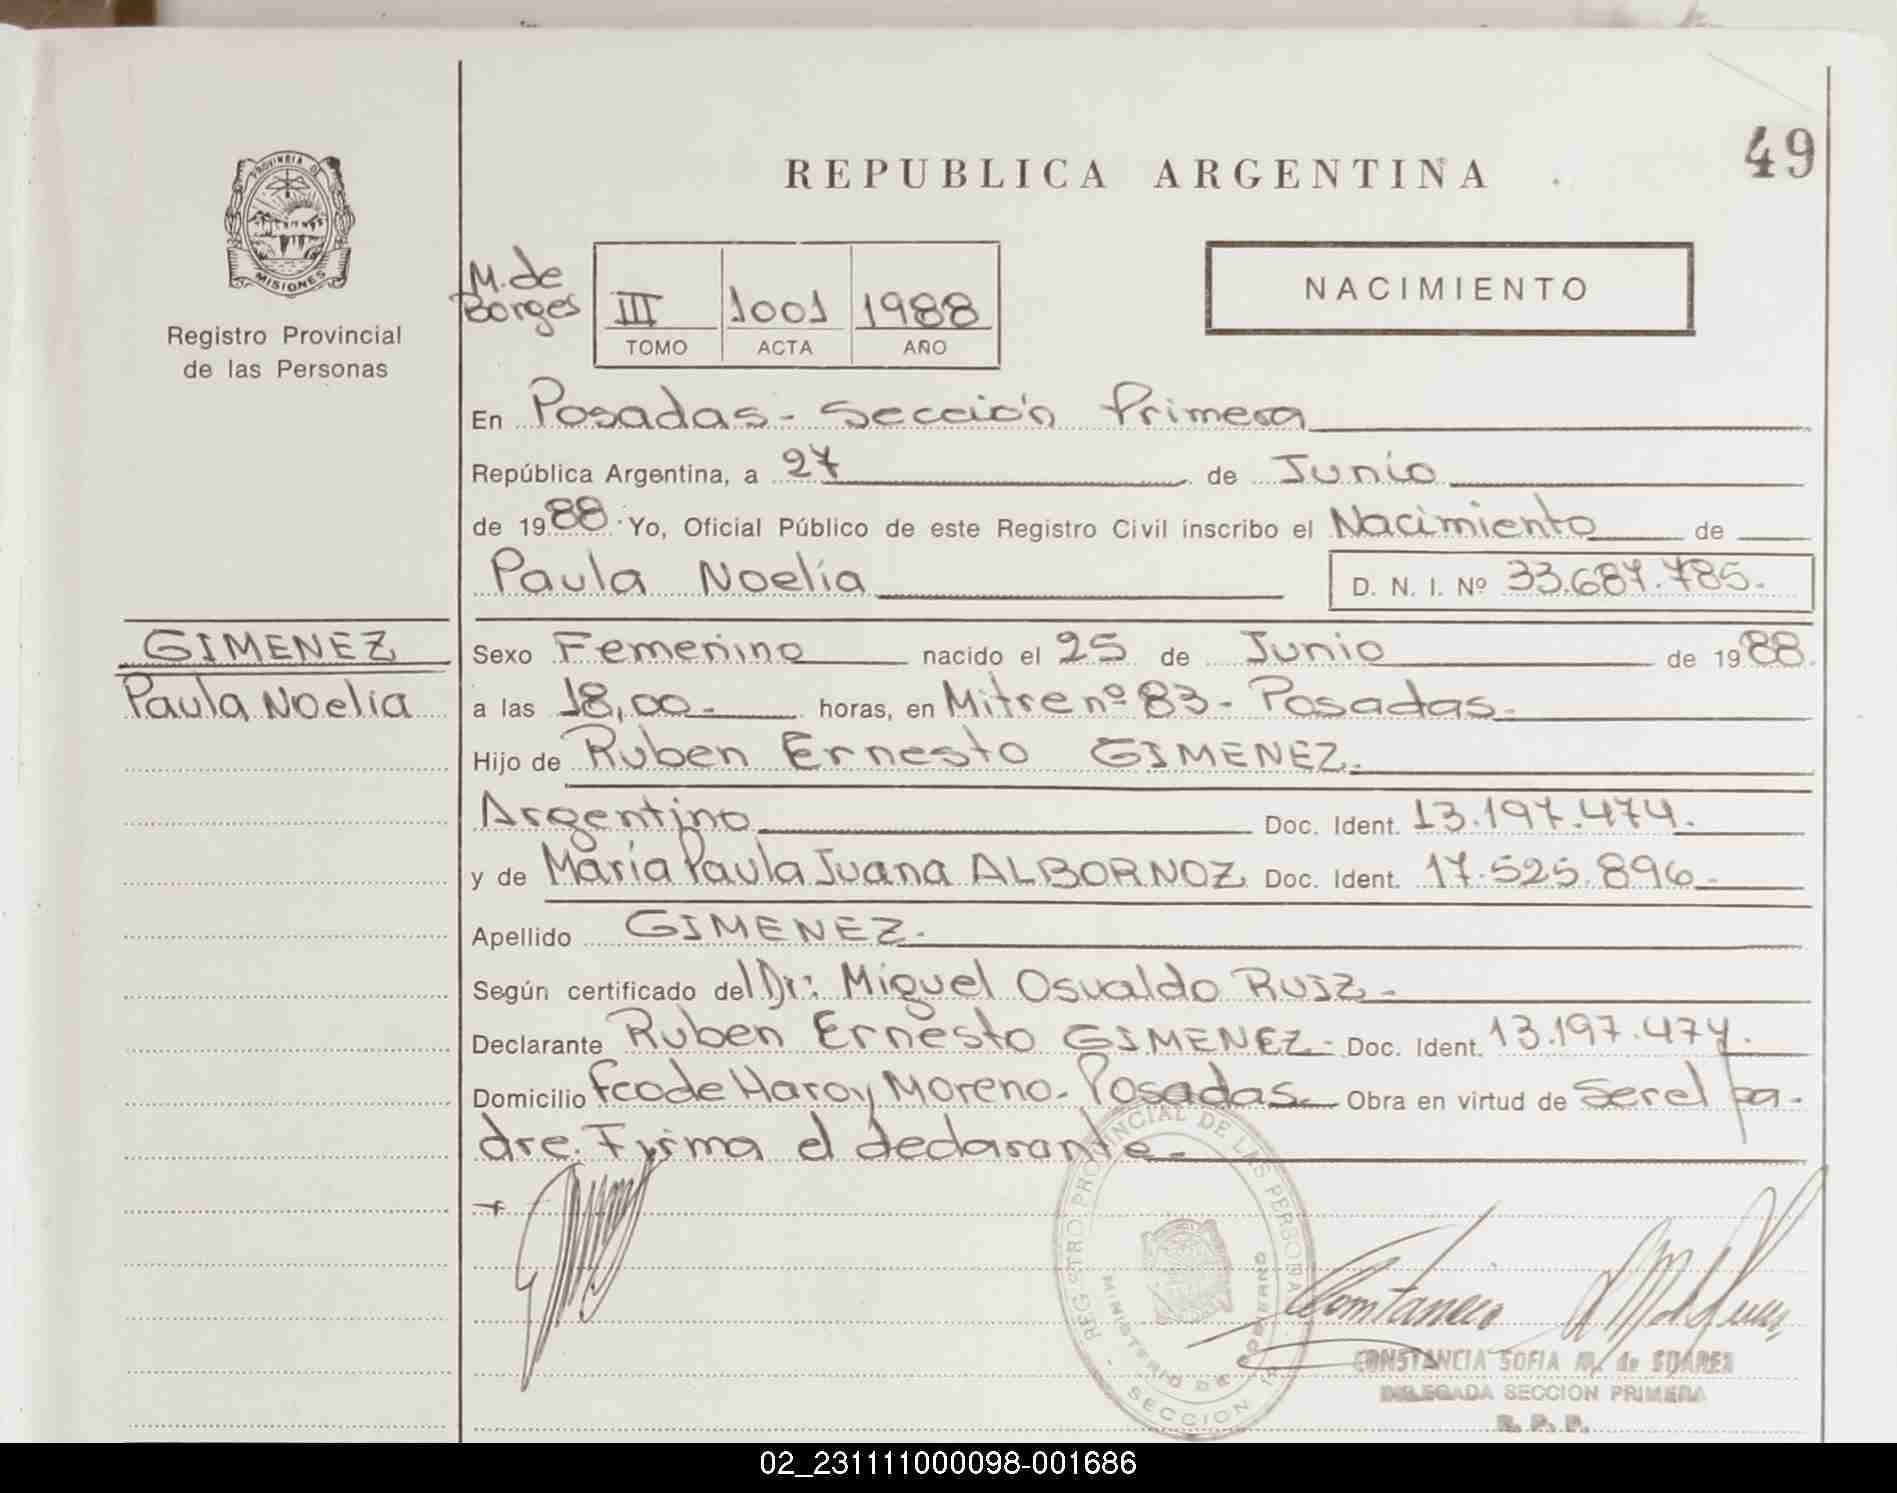 49
REPUBLICA ARGENTINA
PROVINCIA DE
MISIONES
Registro Provincial
de las Personas
M. de
Borges
III 1001 1988
TOMO ACTA AÑO
NACIMIENTO
En Posadas - Sección Primera
República Argentina, a 27 de Junio
de 1988. Yo, Oficial Público de este Registro Civil inscribo el Nacimiento de
Paula Noelia D. N. I. Nº 33.687.785.
GIMENEZ
Paula Noelia
Sexo Femenino nacido el 25 de Junio de 1988.
a las 18,00 horas, en Mitre nº 83 - Posadas.
Hijo de Ruben Ernesto GIMENEZ.
Argentino Doc. Ident. 13.197.474.
y de María Paula Juana ALBORNOZ Doc. Ident. 17.525.896.
Apellido GIMENEZ.
Según certificado del Dr: Miguel Osvaldo RUIZ -
Declarante Ruben Ernesto GIMENEZ - Doc. Ident. 13.197.474.
Domicilio Fco de Haro y Moreno - Posadas. Obra en virtud de ser el pa-
dre. Firma el declarante.
REGISTRO PROVINCIAL DE LAS PERSONAS
MINISTERIO DE GOBIERNO
SECCION 1ª
CONSTANCIA SOFIA M. de SUAREZ
DELEGADA SECCION PRIMERA
R. P. P.
02_231111000098-001686